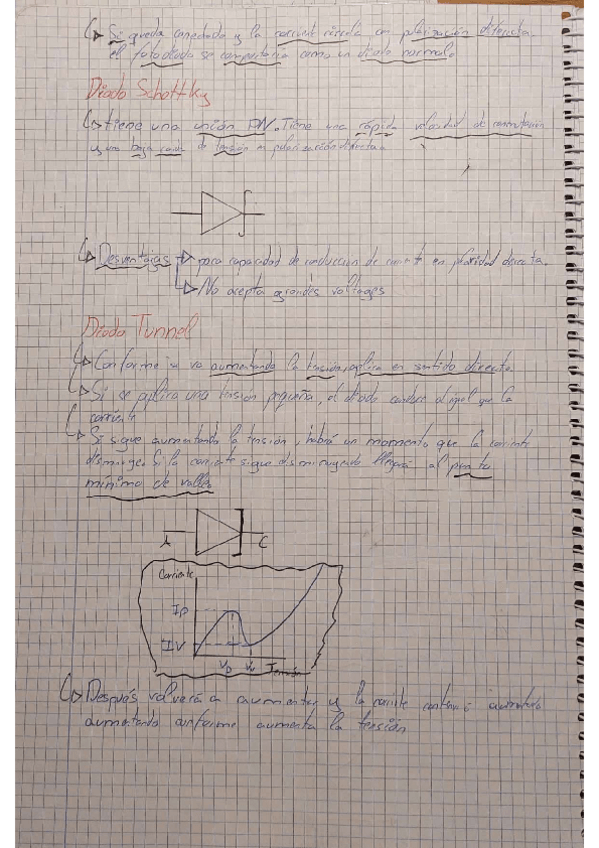 Si queda conectado y la corriente circula con polarización directa.
el fotodiodo se comportaría como un diodo normal.
Diodo Schottky
tiene una unión PN. Tiene una rápida velocidad de conmutación
y una baja caida de tensión en polarización directa.
Desventajas → poca capacidad de conducción de corriente en polaridad directa.
→ No acepta grandes voltages
Diodo Tunnel
Conforme se va aumentando la tensión, aplica en sentido directo.
Si se aplica una tensión pequeña, el diodo conduce al igual que la
corriente
Si sigue aumentando la tensión, habrá un momento que la corriente
disminuye. Si la corriente sigue disminuyendo llegará al punto
mínimo de valle
A C
Corriente
Ip
Iv
Vp Vv Tensión
Después volverá a aumentar y la corriente
aumentando conforme aumenta la tensión